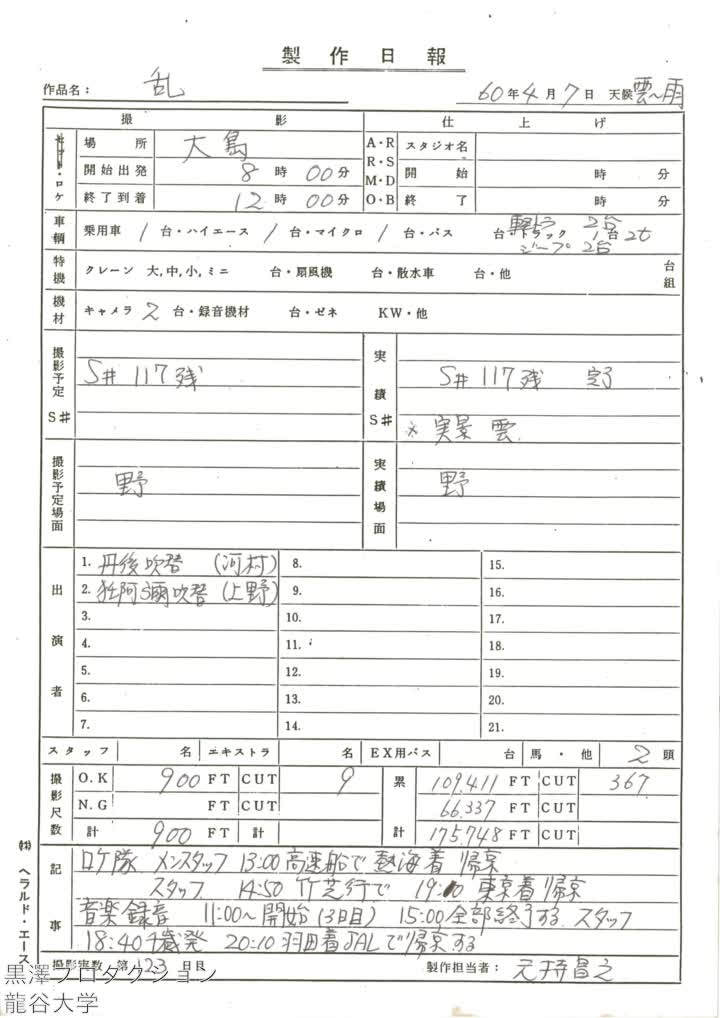 製作日報
作品名： 乱 60年4月7日 天候 雲〜雨
撮影 仕上げ
セット・ロケ 場所 大島 A・R R・S M・D O・B スタジオ名
開始出発 8時00分 開始 時 分
終了到着 12時00分 終了 時 分
車輌 乗用車 1台・ハイエース 1台・マイクロ 1台・バス 台・トラック 1台 2t 軽トラ 2台 ジープ 2台
特機 クレーン 大,中,小,ミニ 台・扇風機 台・散水車 台・他 台組
機材 キャメラ 2台・録音機材 台・ゼネ KW・他
撮影予定S♯ S♯ 117残 実績S♯ S♯ 117残 完了
※ 実景 雲
撮影予定場面 野 実績場面 野
出演者
1. 丹後吹替 (河村) 8. 15.
2. 狂阿彌吹替 (上野) 9. 16.
3. 10. 17.
4. 11. 18.
5. 12. 19.
6. 13. 20.
7. 14. 21.
スタッフ 名 エキストラ 名 EX用バス 台 馬・他 2頭
撮影尺数 O.K 900 FT CUT 9 累計 109.411 FT CUT 367
N.G FT CUT 66.337 FT CUT
計 900 FT CUT 175.748 FT CUT
記事 ロケ隊 メンスタッフ 13:00高速船で熱海着 帰京
スタッフ 14:50 竹芝行で 19:10 東京着 帰京
音楽録音 11:00〜開始 (3日目) 15:00全部終了する スタッフ
18:40千歳発 20:10 羽田着JALで帰京する
撮影実数 第123日目 製作担当者：元持昌之
㈱ヘラルド・エース
黒澤プロダクション
龍谷大学